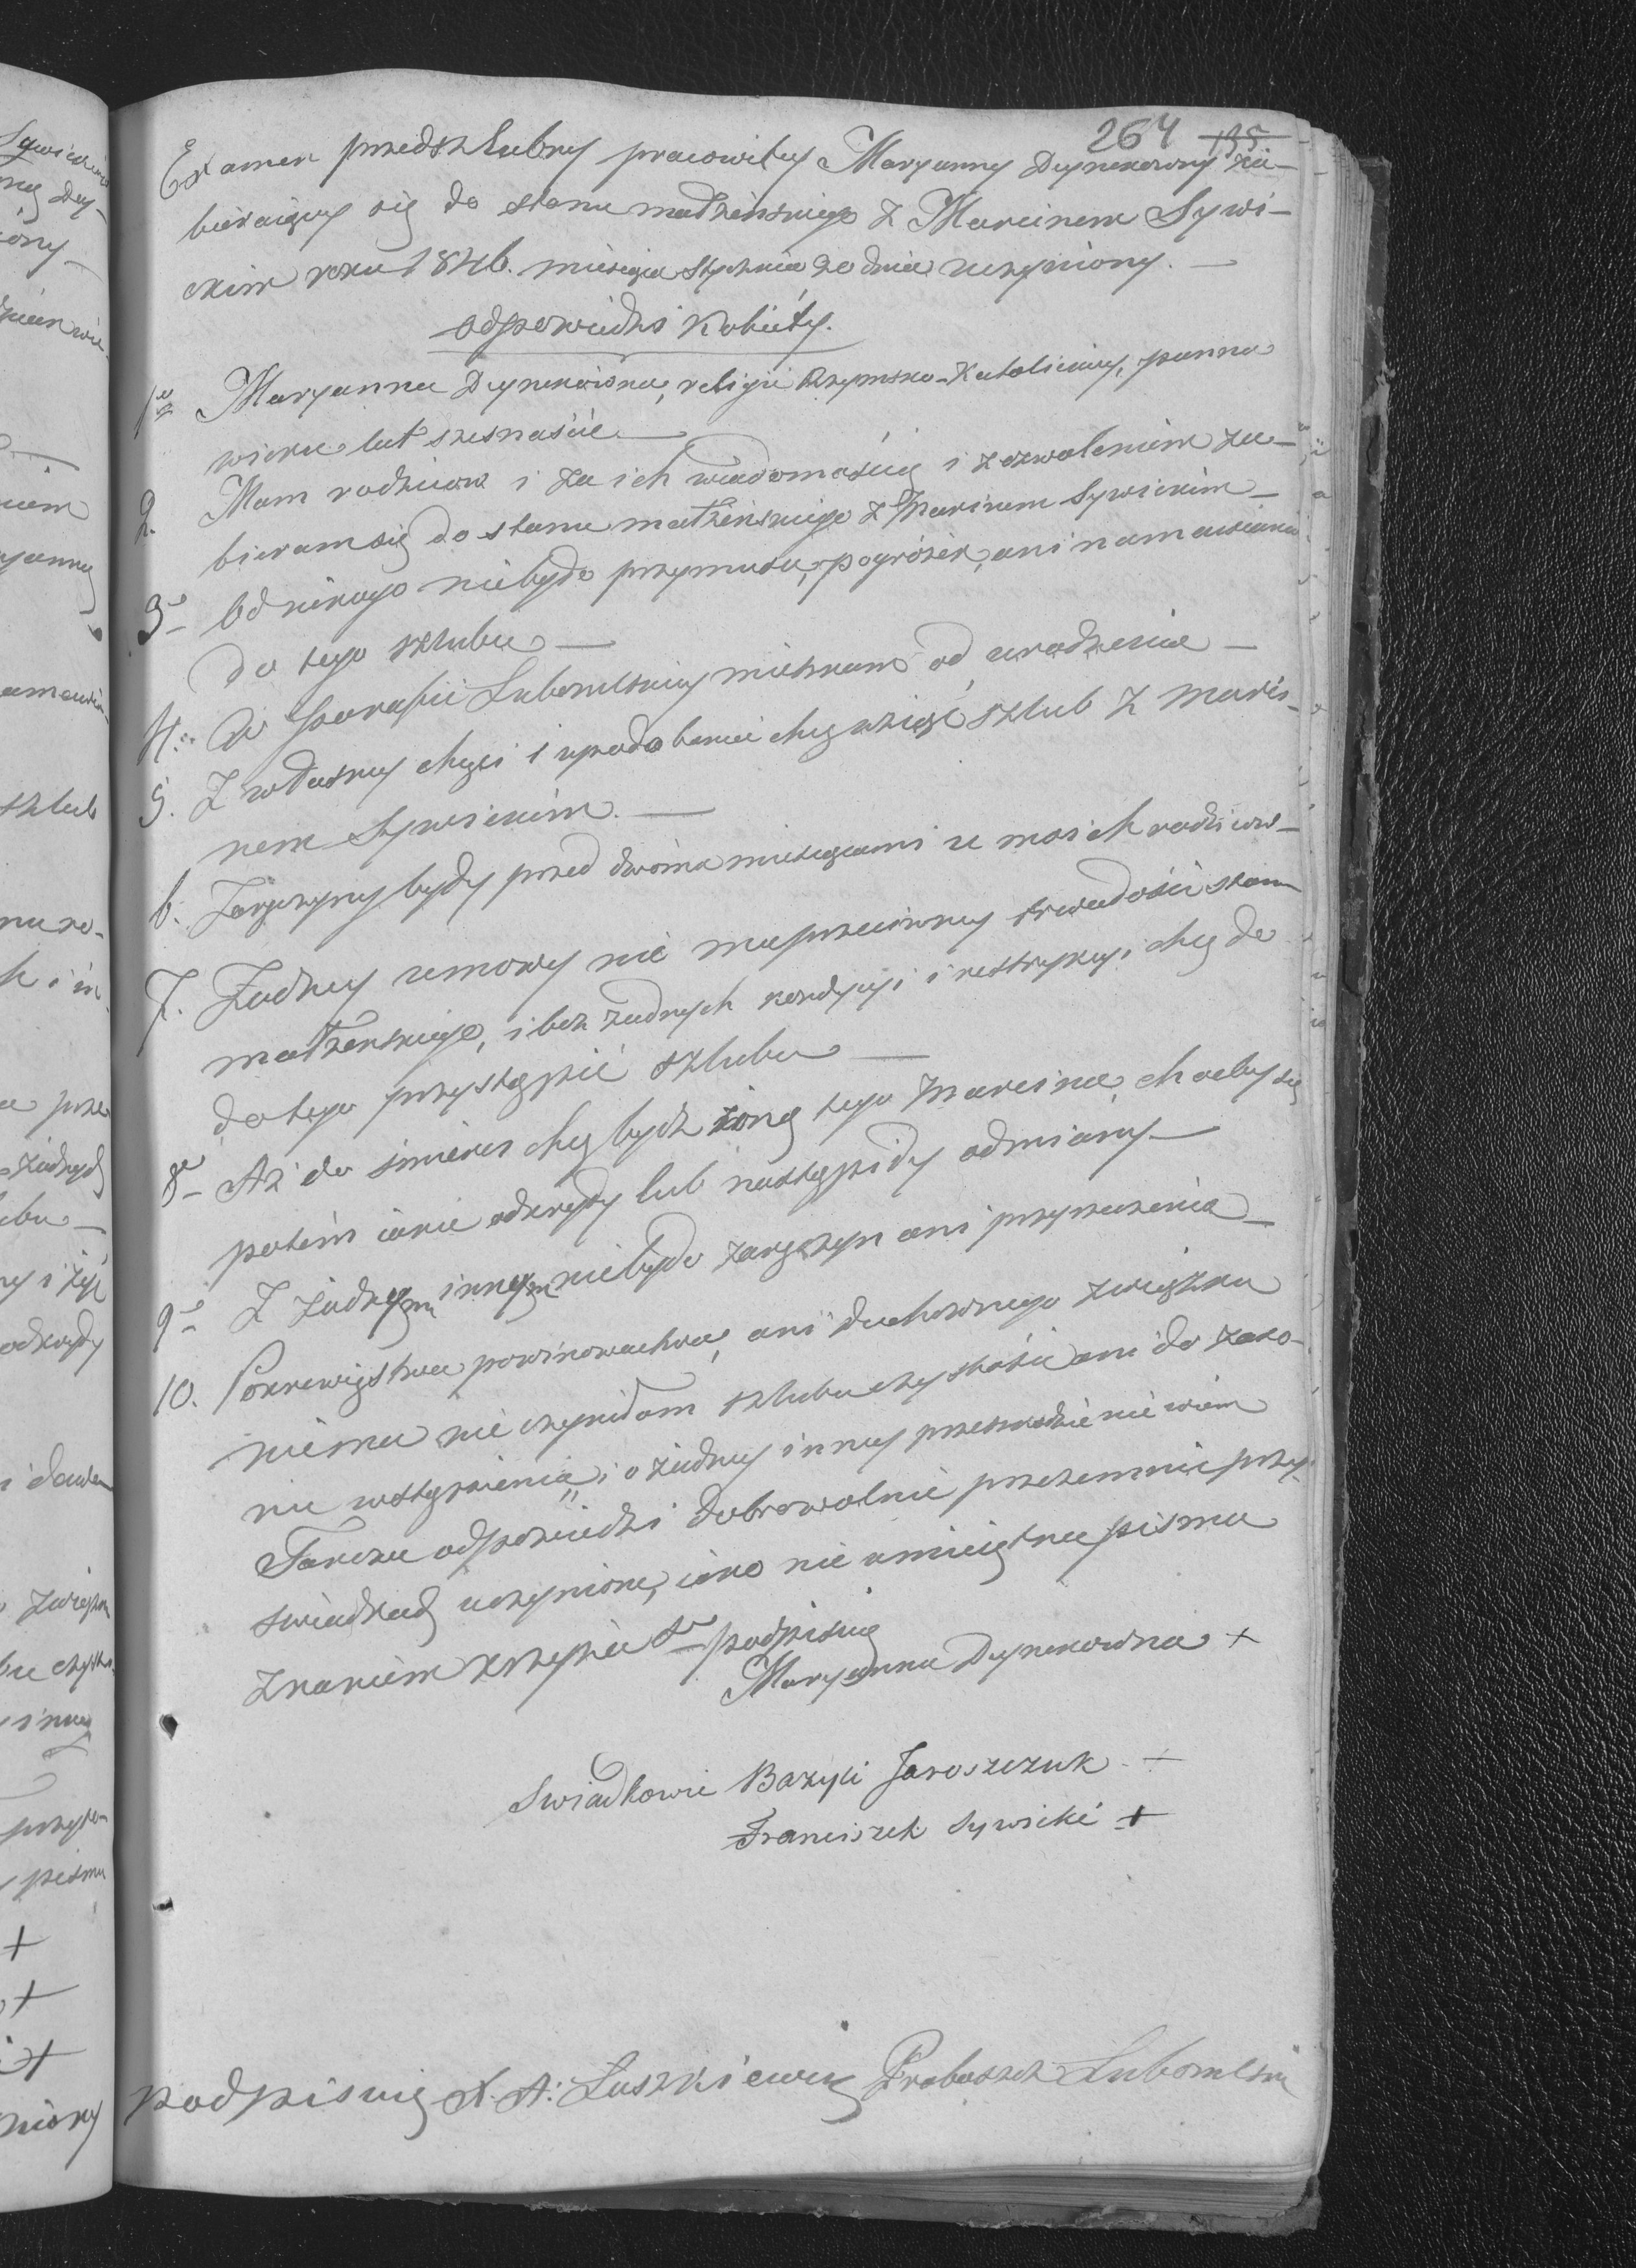 264 195
Examen przedszlubny pracowitey Maryanny Deynekowny za-
bieraiącey się do stanu małżeńskiego z Marcinem Sywi-
ckim roku 1846. miesiąca Stycznia 20 dnia uczyniony. —
odpowiedzi Kobiéty.
1o Maryanna Deynekowna, religii Rzymsko-Katolickiey, panna
wieku lat szesnaście —
2. Mam rodziców i za ich wiadomością i zezwoleniem za-
bieram się do stanu małżeńskiego z Marcinem Sywickim —
3o Od nikogo niebyło przymusu, pogróżek, ani namawiania
do tego szlubu —
4o W Parafii Lubomlskiey mieszkam od urodzenia —
5. Z własney chęci i upodobania chcę wziąść szlub z Marci-
nem Sywickim. —
6. Zaręczyny były przed dwóma miesiącami u moich rodziców —
7. Żadney umowy nie ma przeciwney trwałości stanu
małżeńskiego, i bez żadnych kondycyi i restrykcyi chcę do
do tego przystąpić szlubu —
8o Aż do śmierci chcę bydź żoną tego Marcina, choćby się
potém iakie odkryły lub nastąpiły odmiany —
9o Z żadnym innym niebyło zaręczyn ani przyrzeczenia —
10. Pokrewieństwa powinowactwa, ani duchownego związku
niema nie czyniłam szlubu czystości ani do zako-
nu wstąpienia, i o żadney inney przeszkodzie nie wiem
Takowe odpowiedzi dobrowolnie przezemnie przy
swiadkach uczynione, iako nie umieiętna pisma
znakiem krzyża S. podpisuię
Maryanna Deynekowna +
Swiadkowie Bazyli Jaroszczuk +
Franciszek Sywicki +
podpisuię X. A: Łuszkiewicz Proboszcz Lubomlski